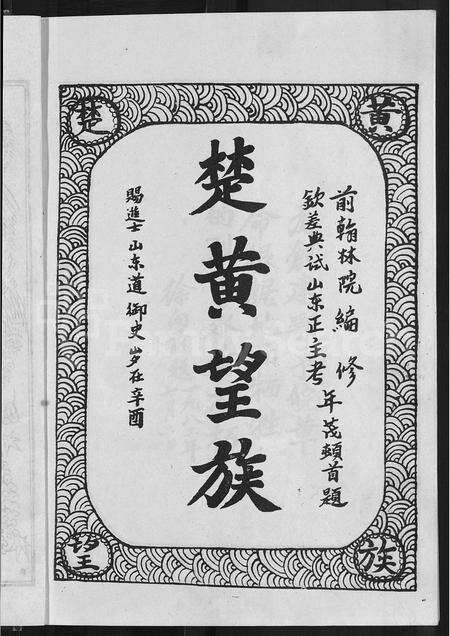 黄
楚
前翰林院編修
欽差典試山东正主考 年茂頓首題
楚黄望族
賜進士山东道御史岁在辛酉
族
望